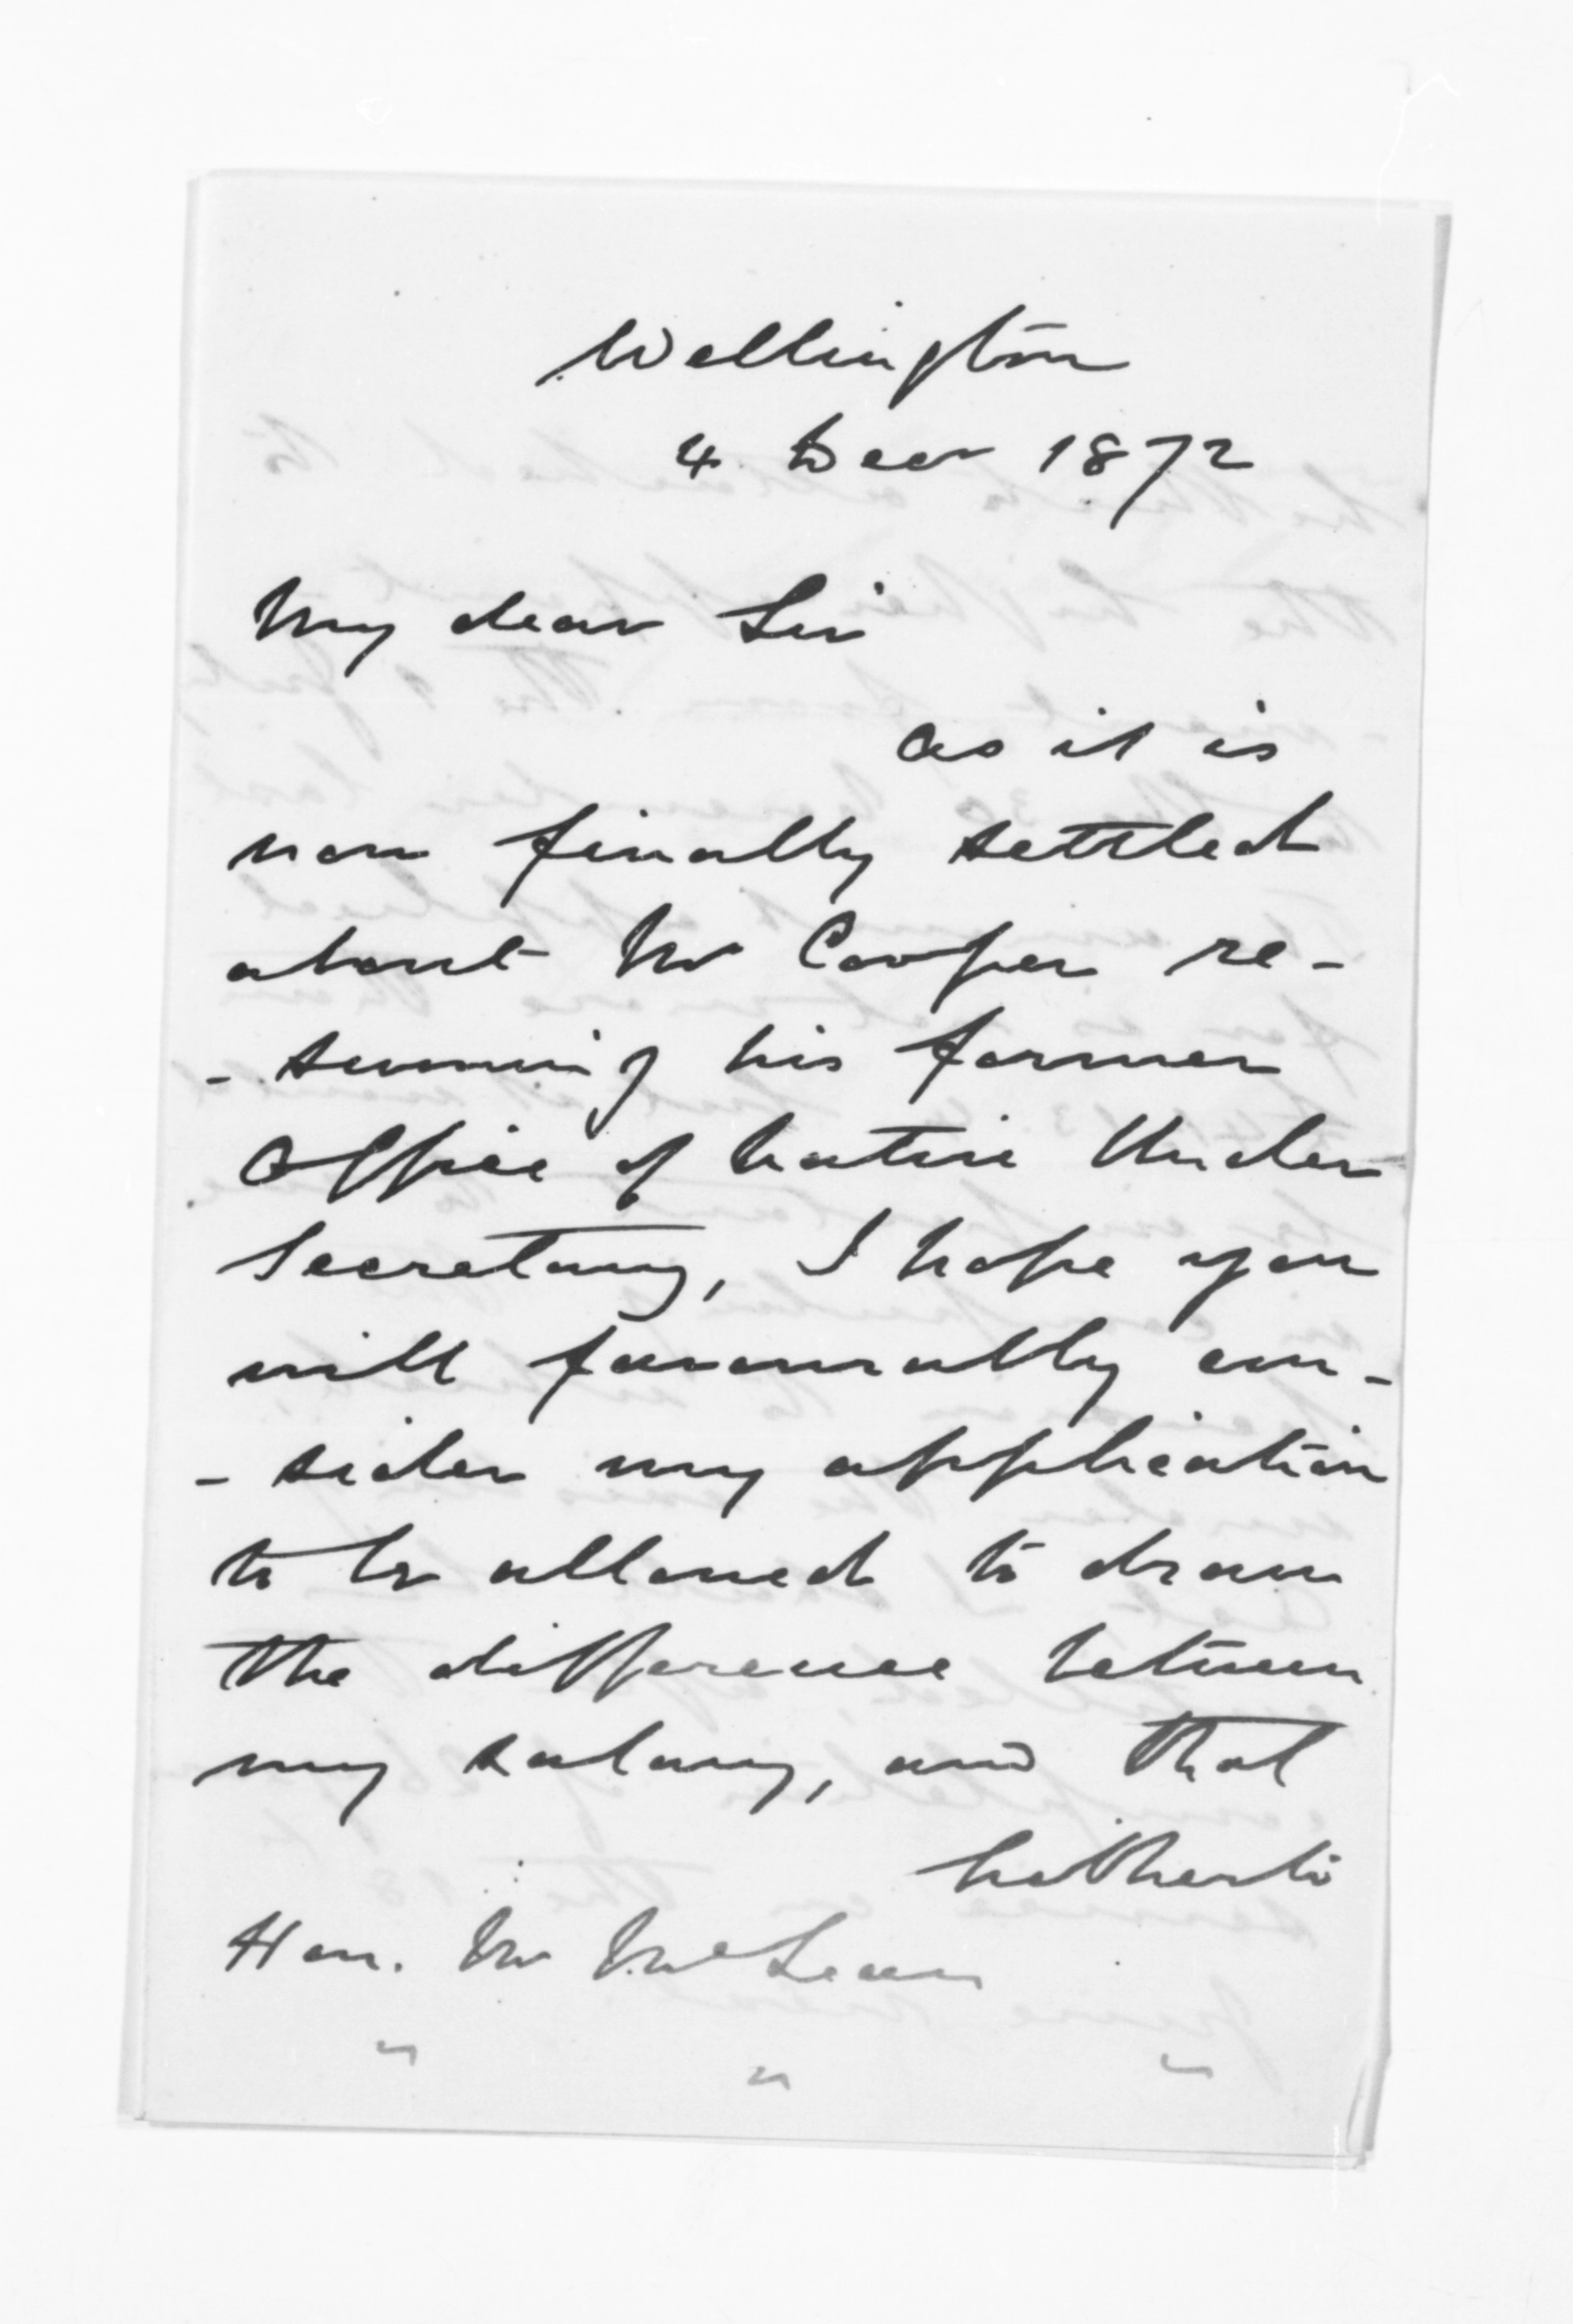 Wellington
4 Decr 1872
My dear Sir
as it is
now finally settled
about Mr Cooper re-
-suming his former
office of Native Under
Secretary, I hope you
will favourably con-
-sider my application
to be allowed to draw
the difference between
my salary, and that
hitherto
Hon. Mr McLean
" " "